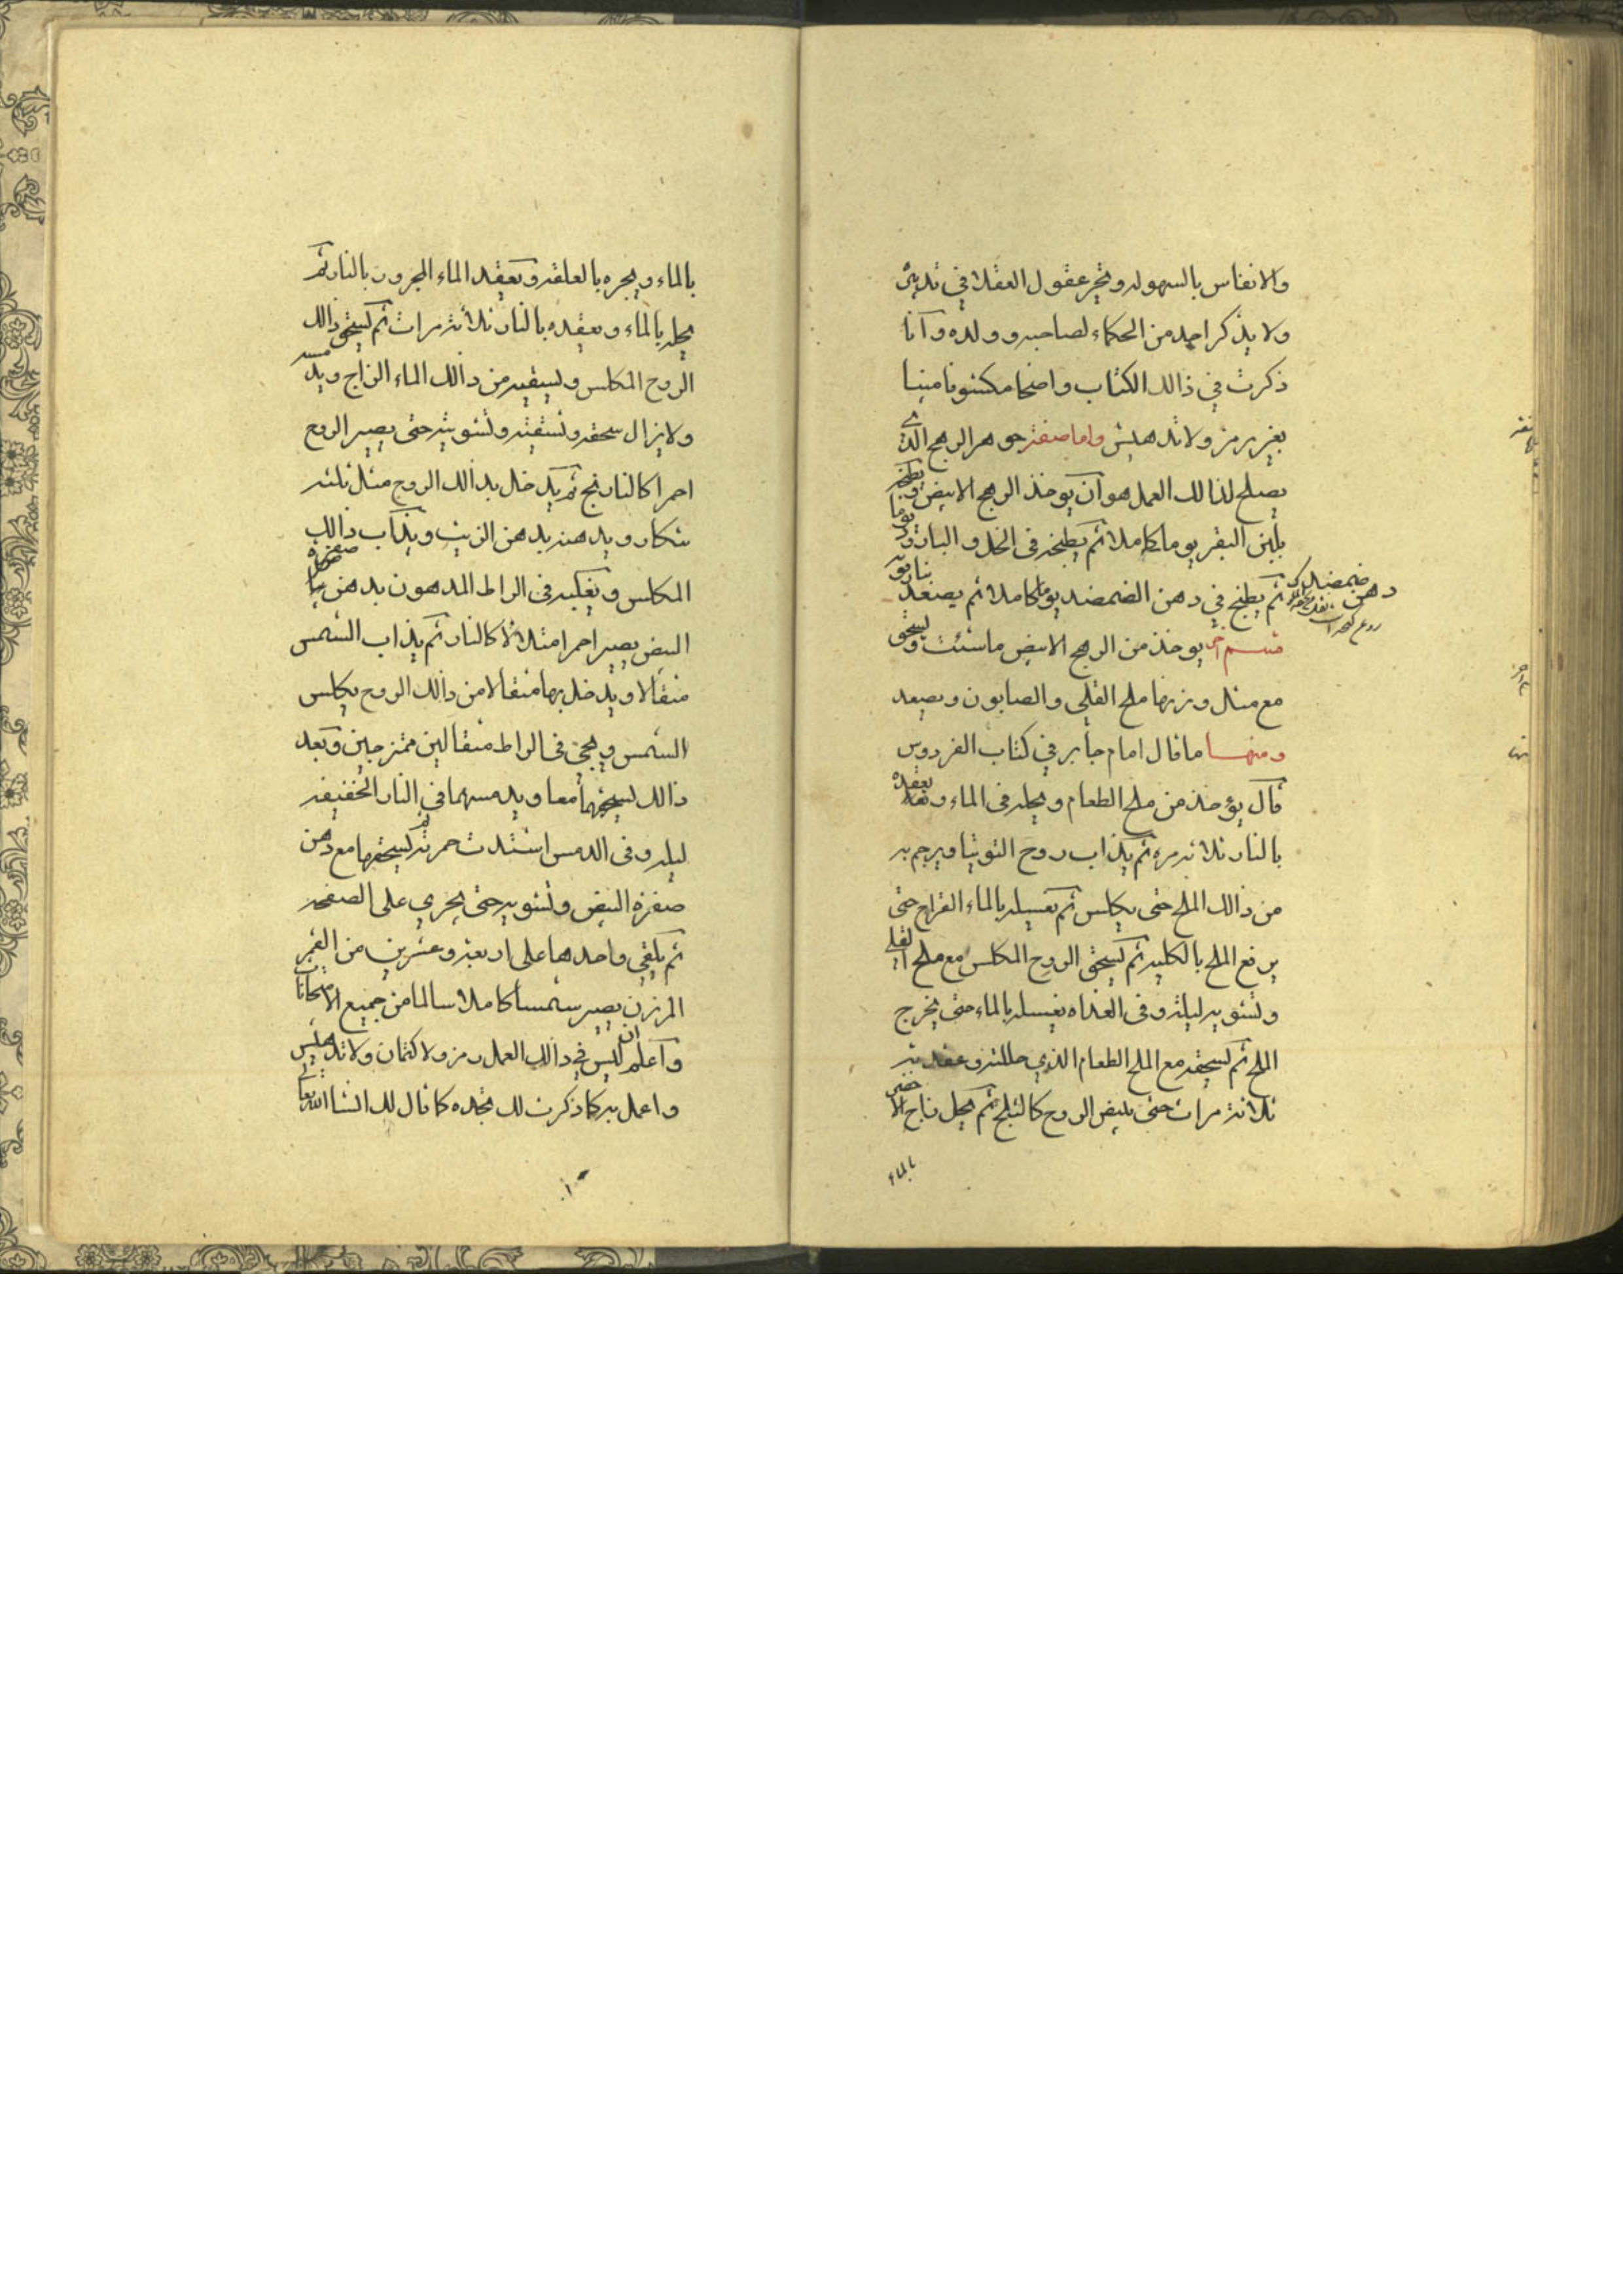 والانفاس بالسهوله وتخير عقول العقلا في تدبيره
ولا يذكر احد من الحكماء لصاحبه وولده وآنا
ذكرت في ذالك الكتاب واضحا مكشوفا مبينا
بغير رمز ولا تدهيش واما صفة جوهر الرهج الذي
يصلح لذالك العمل هو آن يوخذ الرهج الابيض ويطبخ
بلبن البقر يوما كاملا ثم يطبخه في الخل والبارود يوما
ثم يطبخ في دهن الضمضه يوما كاملا ثم يصعد
دهن ضمضه
قسم اخر يوخذ من الرهج الابيض ما شئت ويسحق
مع مثل وزنها ملح القلي والصابون ويصعد
ومنها ما قال امام جابر في كتاب الفردوس
قال يؤخذ من ملح الطعام ويحله في الماء ويعقده
بالنار ثلاثة مره ثم يذاب روح التوتيا ويرجم به
من ذالك الملح حتى يكلس ثم يغسله بالماء القراح حتى
يرفع الملح بالكليه ثم يسحق الروح المكلس مع ملح القلي
وتشويه ليلة وفى الغداه يغسله بالماء حتى يخرج
الملح ثم يسحقه مع الملح الطعام الذي حللته وعقدته
ثلاثة مرات حتى يبيض الروح كالثلج ثم يحل زاج الاخضر
بالماء
بالماء ويجره بالعلقه ويعقد الماء المجرور بالنار ثم
يحله بالماء ويعقده بالنار ثلاثة مرات ثم يسحق ذالك
الروح المكلس ويسقيه من ذالك الماء الزاج ويدمسه
ولا يزال سحقه وتسقيته وتشويته حتى يصير الروح
احمرا كالنار ثم يدخل بذالك الروح مثل ثلثه
تنكار ويدهنه بدهن الزيت ويذآب ذالك
المكلس ويفكيه في الراط المدهون بدهن صفرة
البيض يصير احمرا مثلالا كالنار ثم يذاب الشمس
مثقالا ويدخل بها مثقالا من ذالك الروح يكلس
الشمس ويجئ في الراط مثقالين ممتزجين وبعد
ذالك يسحقهما معا ويدمسهما في النار الخفيفه
ليله وفى الدمس اشتدت حمرته ثم يسحقها مع دهن
صفرة البيض وتشويه حتى يجري على الصفحه
ثم يلقى واحدها على اربعة وعشرين من القمر
المرزن يصير شمسا كاملا سالما من جميع الامتحانات
وآعلم ان ليس في ذالك العمل رمز ولا كتمان ولا تدهيس
واعمل به كما ذكرت لك تجده كما قال لك انشا الله تعا